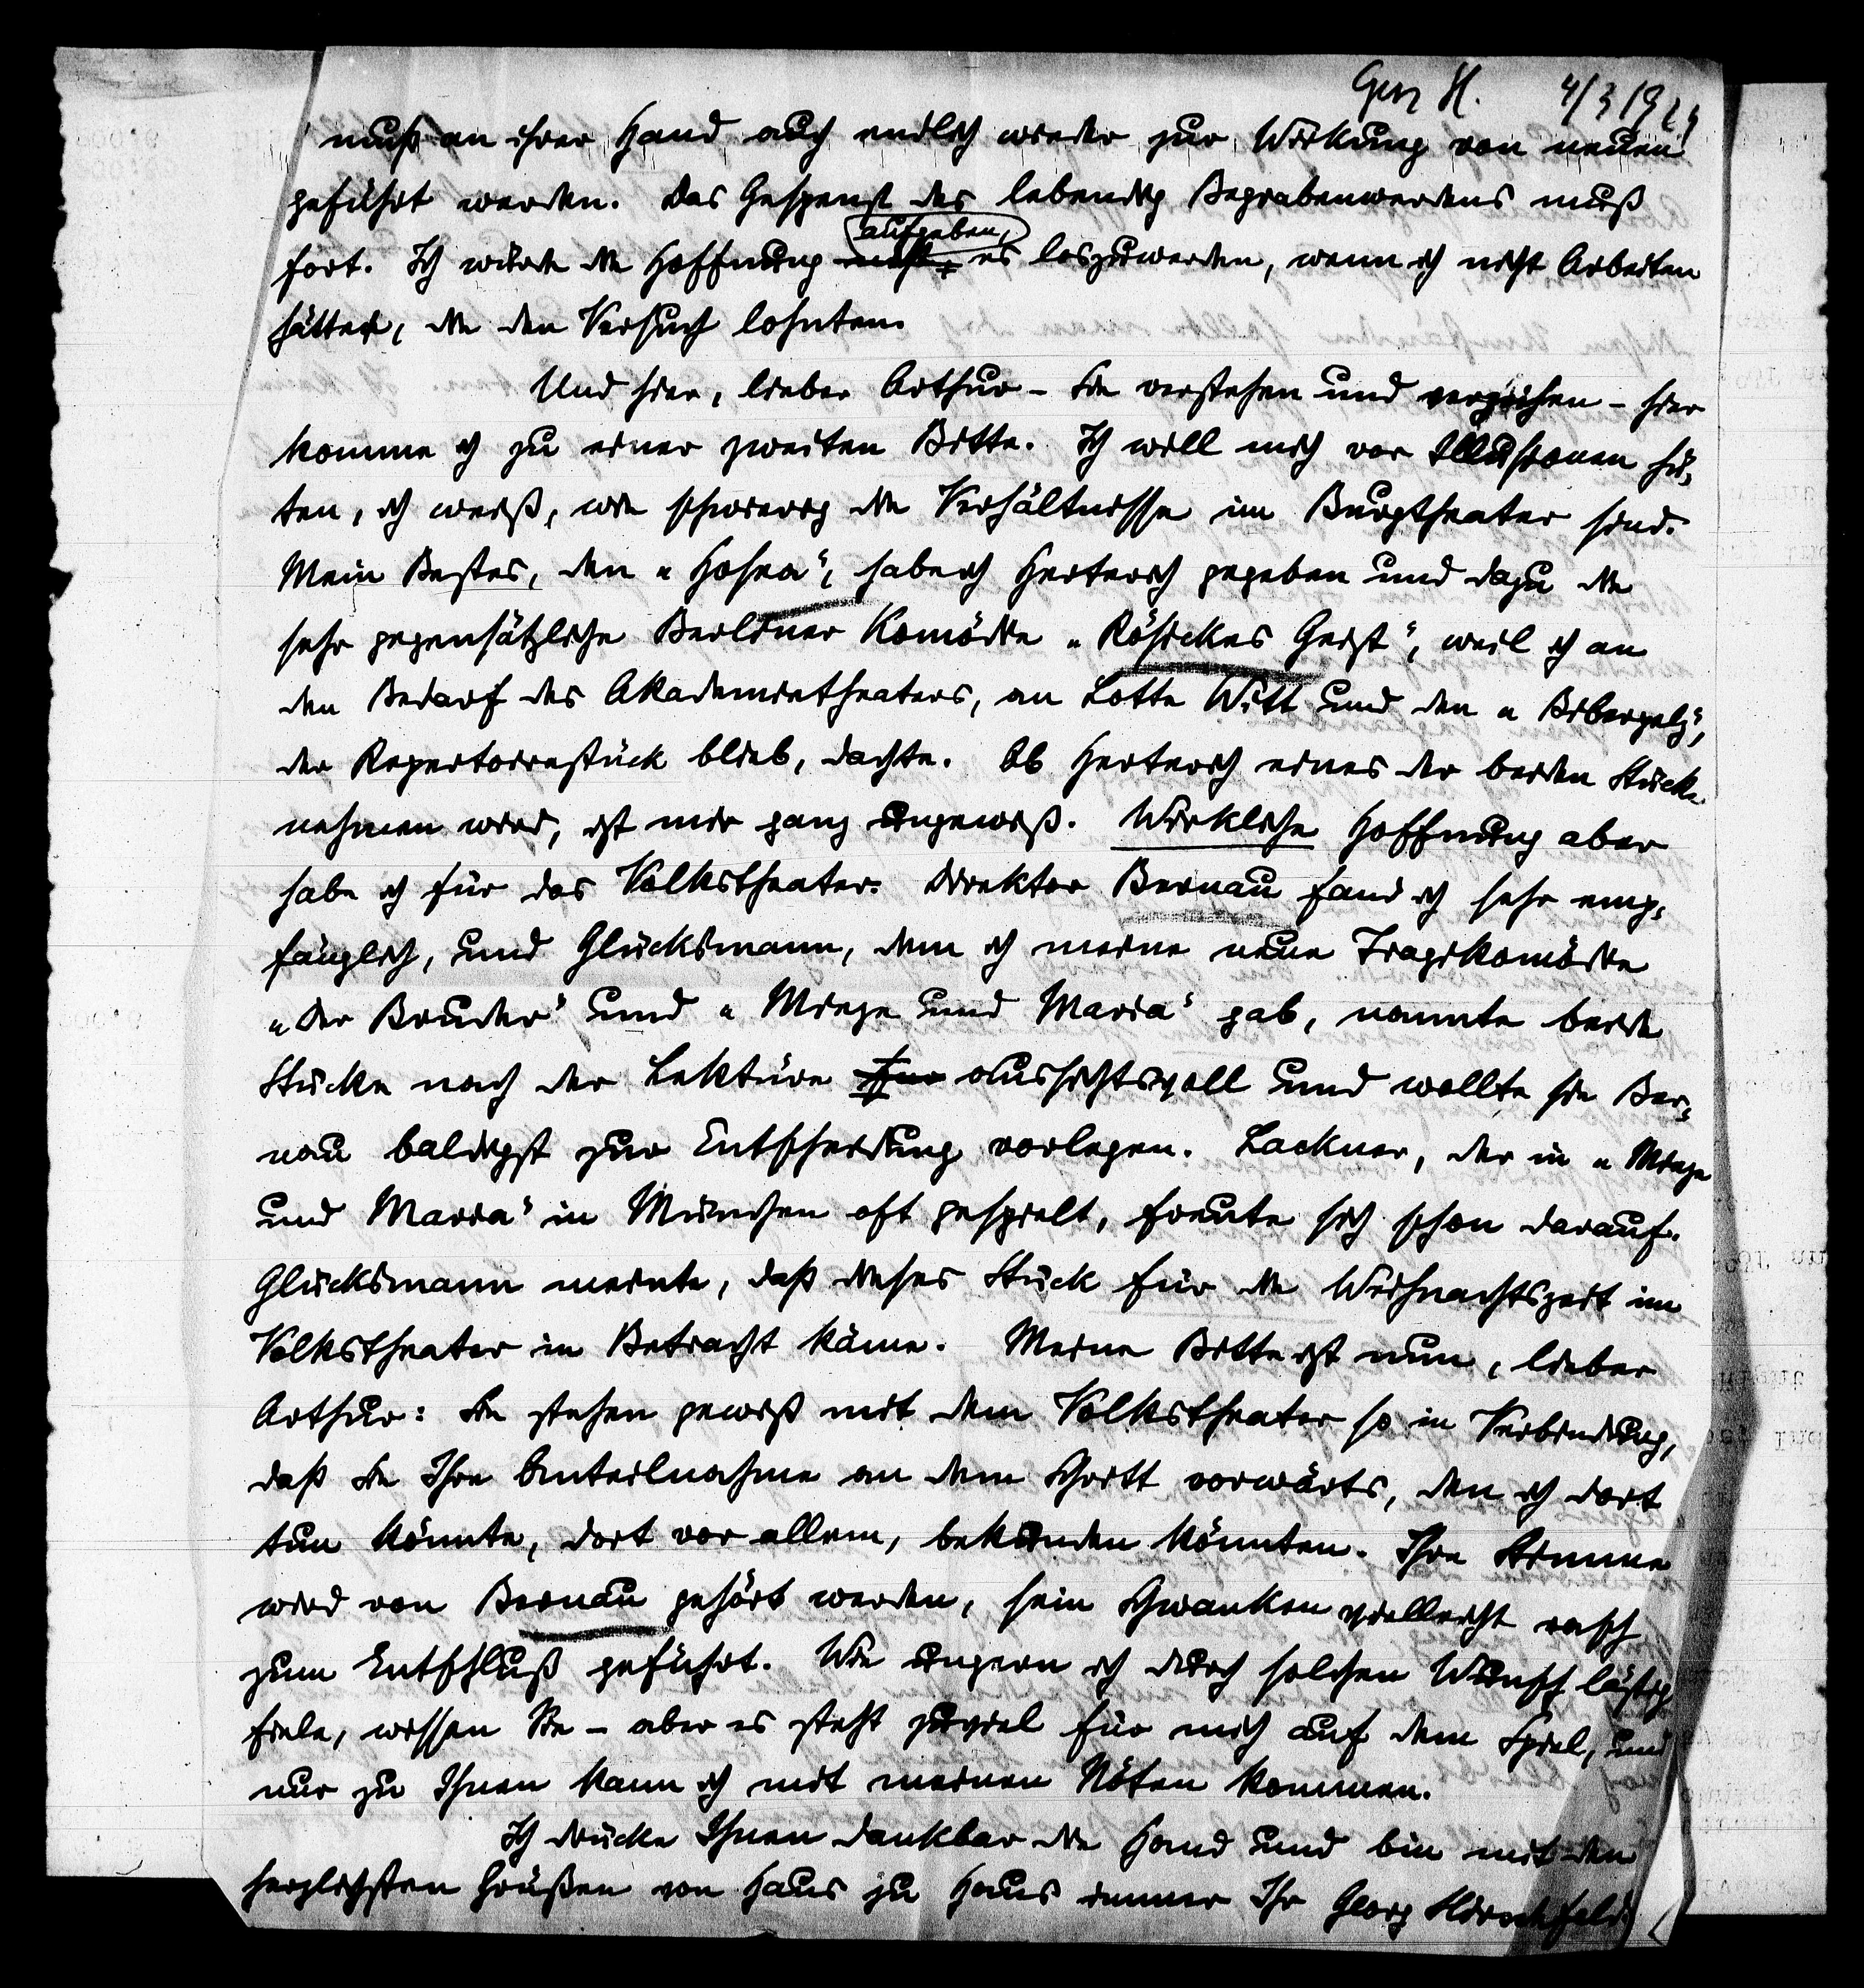 Georg H. 4/3 1924
muß an ihrer Hand auch endlich wieder zur Wirkung von neuen
geführt werden. Das Gespenst des lebendig Begrabenwerdens muß
aufgeben,
fort. Ich würde die Hoffnung nicht, es loszuwerden, wenn ich nicht Arbeiten
hätte, die den Versuch lohnten.
Und hier, lieber Arthur – Sie verstehen und verzeihen – hier
komme ich zu einer zweiten Bitte. Ich will mich vor Illusionen hü-
ten, ich weiß, wie schwierig die Verhältnisse im Burgtheater sind.
Mein Bestes, den „Hosea“, habe ich Herterich gegeben und dazu die
sehr gegensätzliche Berliner Komödie „Rösickes Geist“, weil ich an
den Bedarf des Akademietheaters, an Lotte Witt und den „Biberpelz“,
der Repertoirestück blieb, dachte. Ob Herterich eines der beiden Stücke
nehmen wird, ist mir ganz ungewiß. Wirkliche Hoffnung aber
habe ich für das Volkstheater. Direktor Bernau fand ich sehr emp-
fänglich, und Glücksmann, dem ich meine neue Tragikomödie
„Der Bruder“ und „Mieze und Maria“ gab, nannte beide
Stücke nach der Lektüre aussichtsvoll und wollte sie Ber-
nau baldigst zur Entscheidung vorlegen. Lackner, der in „Mieze
und Maria“ in München oft gespielt, freute sich schon darauf.
Glücksmann meinte, daß dieses Stück für die Weihnachtszeit im
Volkstheater in Betracht käme. Meine Bitte ist nun, lieber
Arthur: Sie stehen gewiß mit dem Volkstheater so in Verbindung,
daß Sie Ihre Anteilnahme an dem Schritt vorwärts, den ich dort
tun könnte, dort vor allem, bekunden könnten. Ihre Stimme
wird von Bernau gehört werden, sein Schwanken vielleicht rasch
zum Entschluß geführt. Wie ungern ich durch solchen Wunsch lästig
fiele, wissen Sie – aber es steht zuviel für mich auf dem Spiel, und
nur zu Ihnen kann ich mit meinen Nöten kommen.
Ich drücke Ihnen dankbar die Hand und bin mit den
herzlichsten Grüßen von Haus zu Haus immer Ihr Georg Hirschfeld